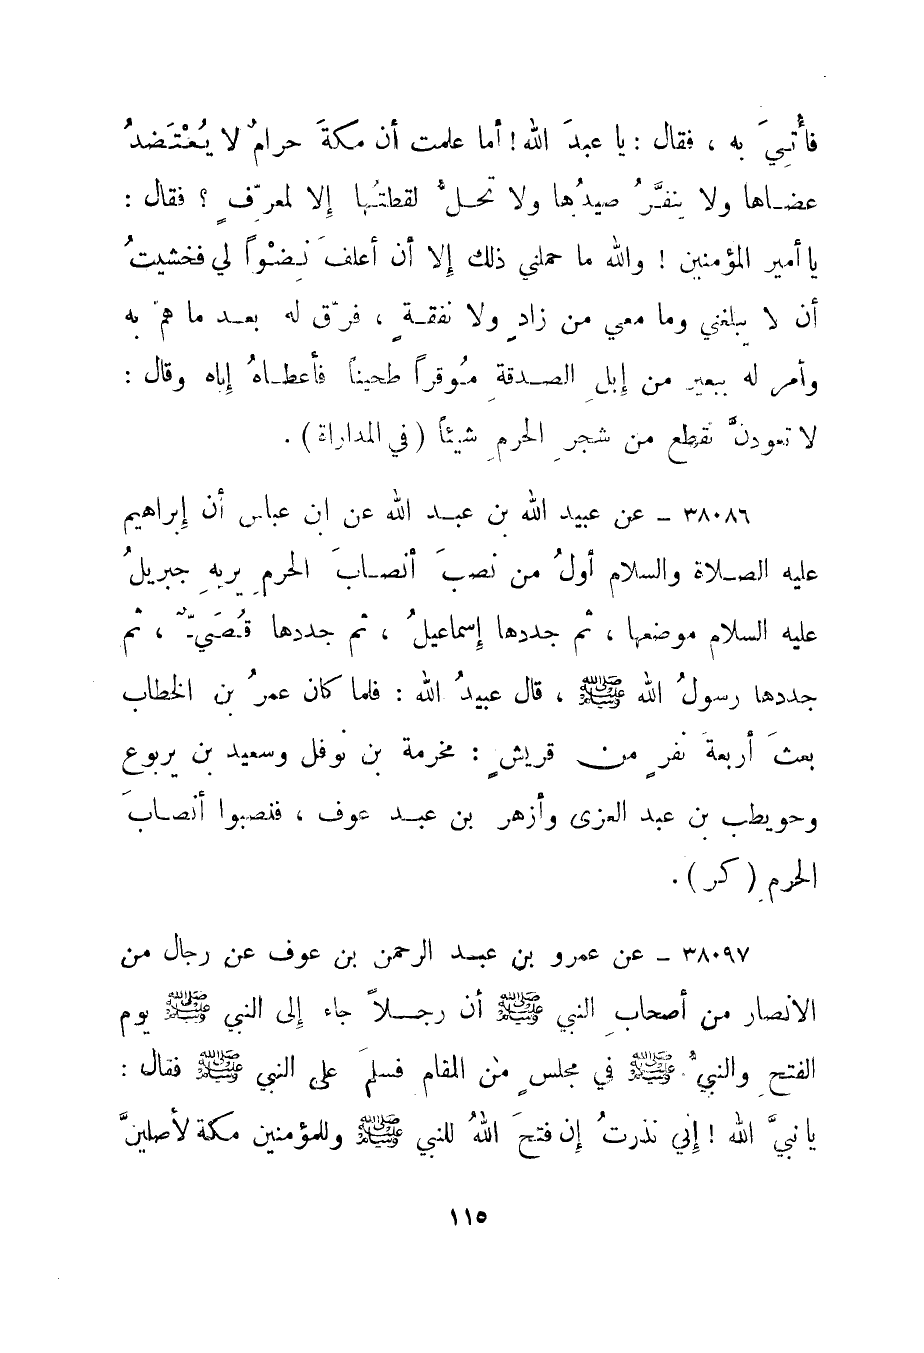 فأُتيَ به ، فقال : يا عبدَ الله ! أما علمت أن مكةَ حرامٌ لا يُعْتَضدُ
عضاها ولا ينفَّرُ صيدُها ولا تحلُّ لقطتُها إلا لمعرِّفٍ ؟ فقال :
يا أمير المؤمنين ! والله ما حملني ذلك إلا أن أعلفَ نِضْواً لي فخشيتُ
أن لا يبلغني وما معي من زادٍ ولا نفقةٍ ، فرقّ له بعد ما همّ به
وأمر له ببعير من إبلِ الصدقةِ مُوقراً طحيناً فأعطاهُ إياه وقال :
لا تعودنَّ تقطع من شجرِ الحرمِ شيئاً ( في المداراة ) .
٣٨٠٨٦ - عن عبيد الله بن عبد الله عن ابن عباس أن إبراهيم
عليه الصلاة والسلام أولُ من نصبَ أنصابَ الحرمِ يريهِ جبريلُ
عليه السلام موضعها ، ثم جددها إسماعيلُ ، ثم جددها قُصَيٌّ ، ثم
جددها رسولُ الله ﷺ ، قال عبيدُ الله : فلما كان عمرُ بن الخطاب
بعثَ أربعةَ نفرٍ من قريشٍ : مخرمة بن نوفل وسعيد بن يربوع
وحويطب بن عبد العزى وأزهر بن عبد عوف ، فنصبوا أنصابَ
الحرمِ ( كر ) .
٣٨٠٩٧ - عن عمرو بن عبد الرحمن بن عوف عن رجال من
الانصار من أصحابِ النبي ﷺ أن رجلاً جاء إلى النبي ﷺ يوم
الفتحِ والنبيُّ ﷺ في مجلسٍ من المقام فسلمَ على النبي ﷺ فقال :
يا نبيَّ الله ! إني نذرتُ إن فتحَ اللهُ للنبي ﷺ وللمؤمنين مكة لأصلينَّ
١١٥